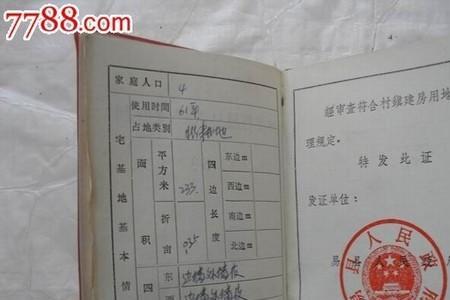 7788.com
家庭人口 4
使用时间 61年
占地类别
宅基地基本情
面积
平方米 233
折亩 0.35
四边长度
东边=
西边=
南边=
北边=
四
东 边墙外墙皮
边墙外墙皮
经审查符合村镇建房用地
理规定。
特发此证
发证单位:
易县人民政
县人民政